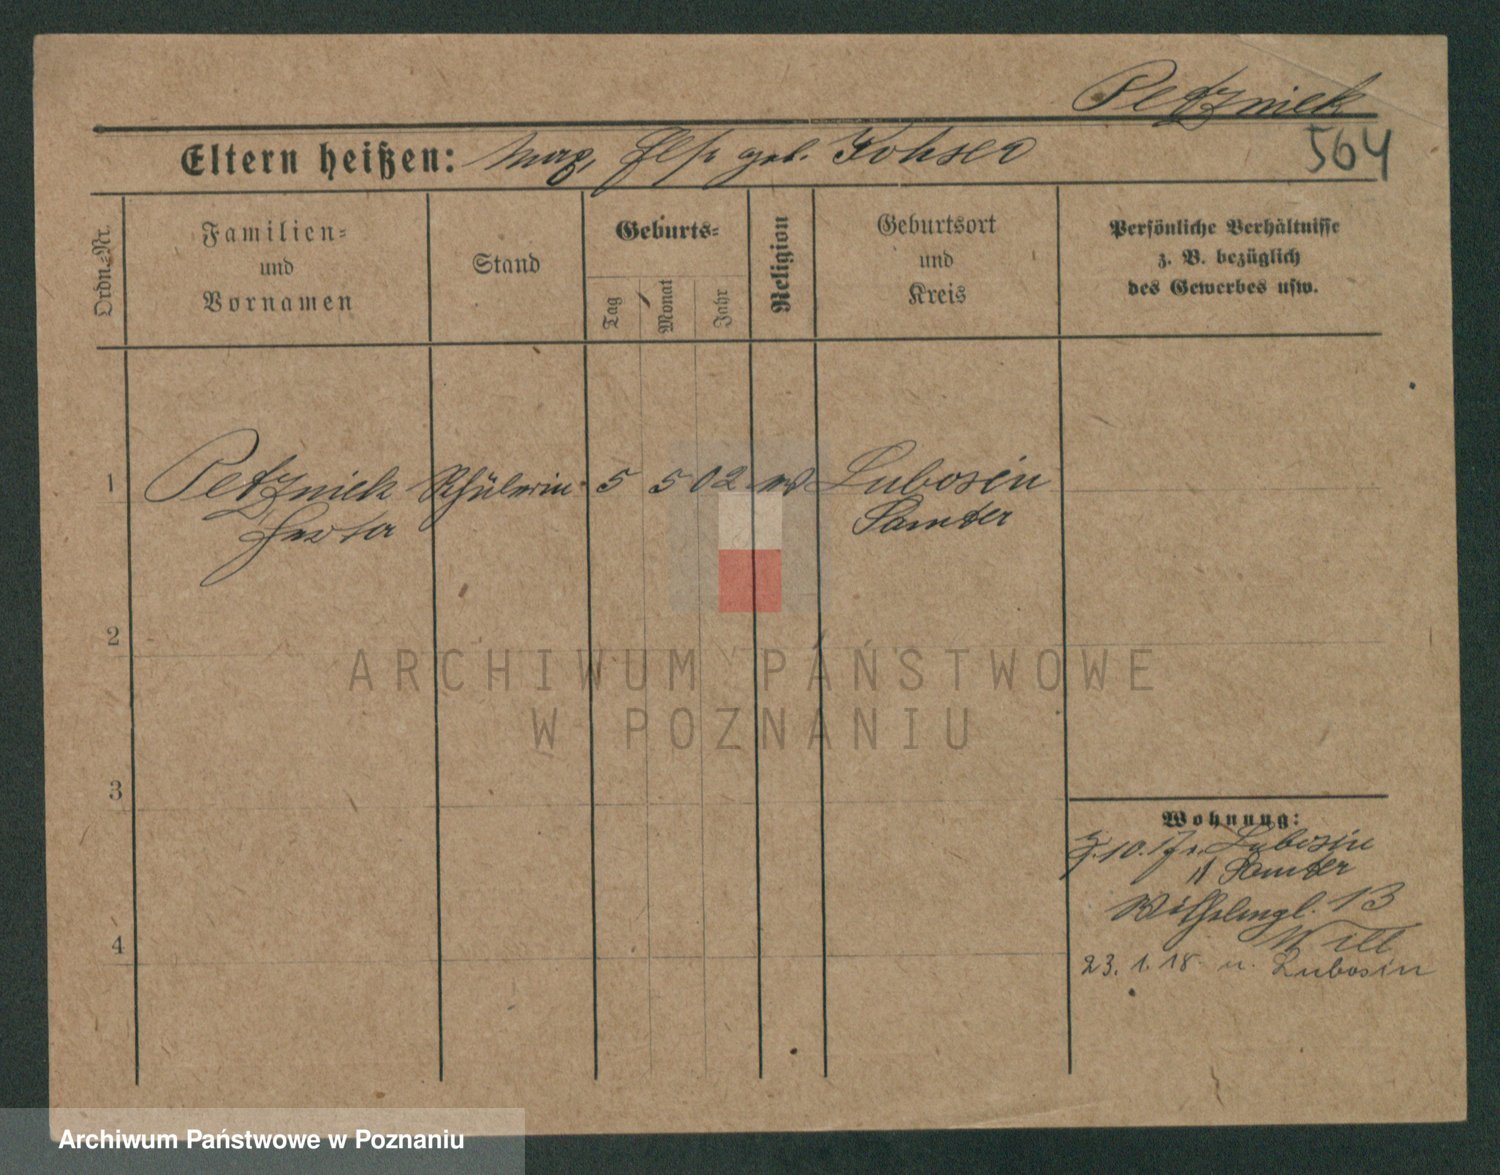 Petznick
564
Eltern heißen: Max, geb.
Ordn.-Nr.
Familien-
und
Vornamen
Stand
Geburts-
Tag
Monat
Jahr
Religion
Geburtsort
und
Kreis
Persönliche Verhältnisse
z. B. bezüglich
des Gewerbes usw.
1
Petznick Schülerin 5 5 02 Lubosin
Herta Samter
2
3
4
Wohnung:
10. 17. Lubosin
Samter
13
Will
23. 1. 18. n. Lubosin
ARCHIWUM PAŃSTWOWE
W POZNANIU
Archiwum Państwowe w Poznaniu